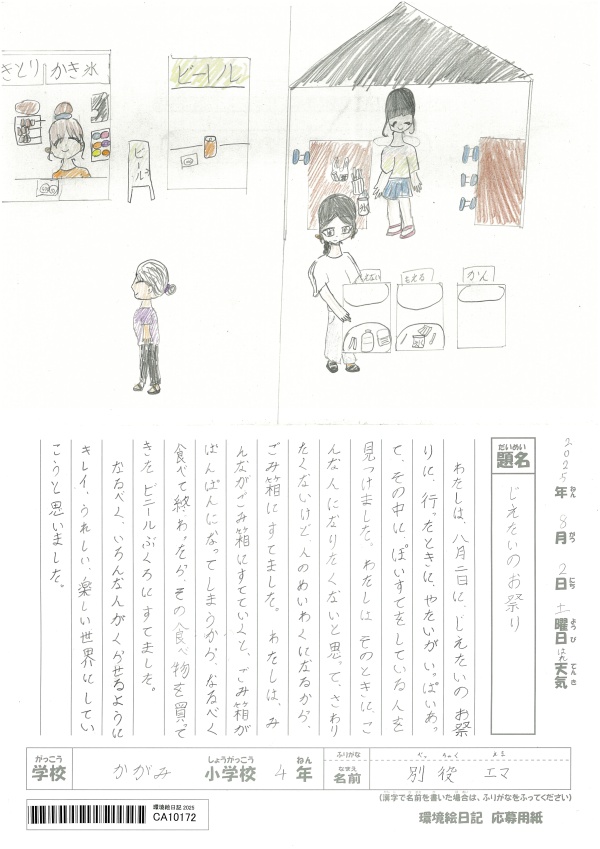 きとり
かき氷
ビール
ビール
もえない
もえる
かん
2025年ねん 8月がつ 2日にち 土曜日ようび はれ天気てんき
題名だいめい
じえたいのお祭り
わたしは、八月二日に、じえたいのお祭
りに、行ったときに、やたいが、いっぱいあっ
て、その中に、ぽいすてをしている人を
見つけました。わたしは、そのときに、こ
んな人になりたくないと思って、さわり
たくないけど、人のめいわくになるから、
ごみ箱にすてました。 わたしは、み
んながごみ箱にすてていくと、ごみ箱が
ぱんぱんになってしまうから、なるべく
食べて終わったら、その食べ物を買って
きた ビニールぶくろにすてました。
なるべく、いろんな人がくらせるように
キレイ、うれしい、楽しい世界にしてい
こうと思いました。
学校がっこう かがみ 小学校しょうがっこう 4 年ねん
ふりがな べっ ちゃく エミ
名前なまえ 別役 エマ
(漢字で名前を書いた場合は、ふりがなをふってください)
環境絵日記 2025
CA10172
環境絵日記 応募用紙